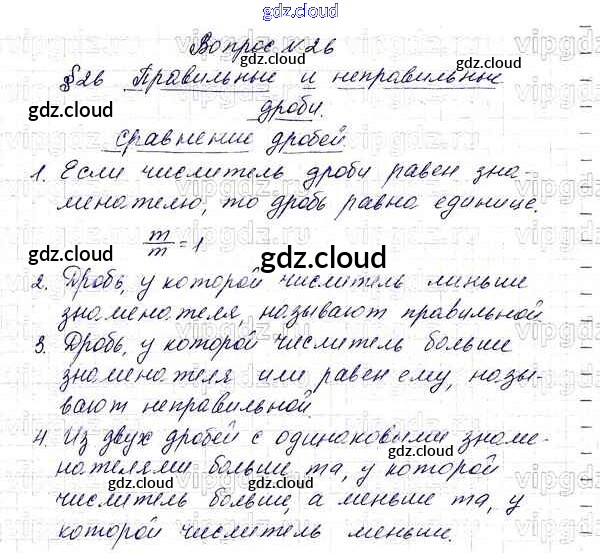 gdz.cloud
Вопрос №26
§26 Правильные и неправильные
дроби.
сравнение дробей.
1. Если числитель дроби равен зна-
менателю, то дробь равна единице.
m/m = 1
gdz.cloud
2. Дробь, у которой числитель меньше
знаменателя, называют правильной
3. Дробь, у которой числитель больше
знаменателя или равен ему, назы-
вают неправильной.
4. Из двух дробей с одинаковыми знаме-
нателями больше та, у которой
числитель больше, а меньше та, у
которой числитель меньше.